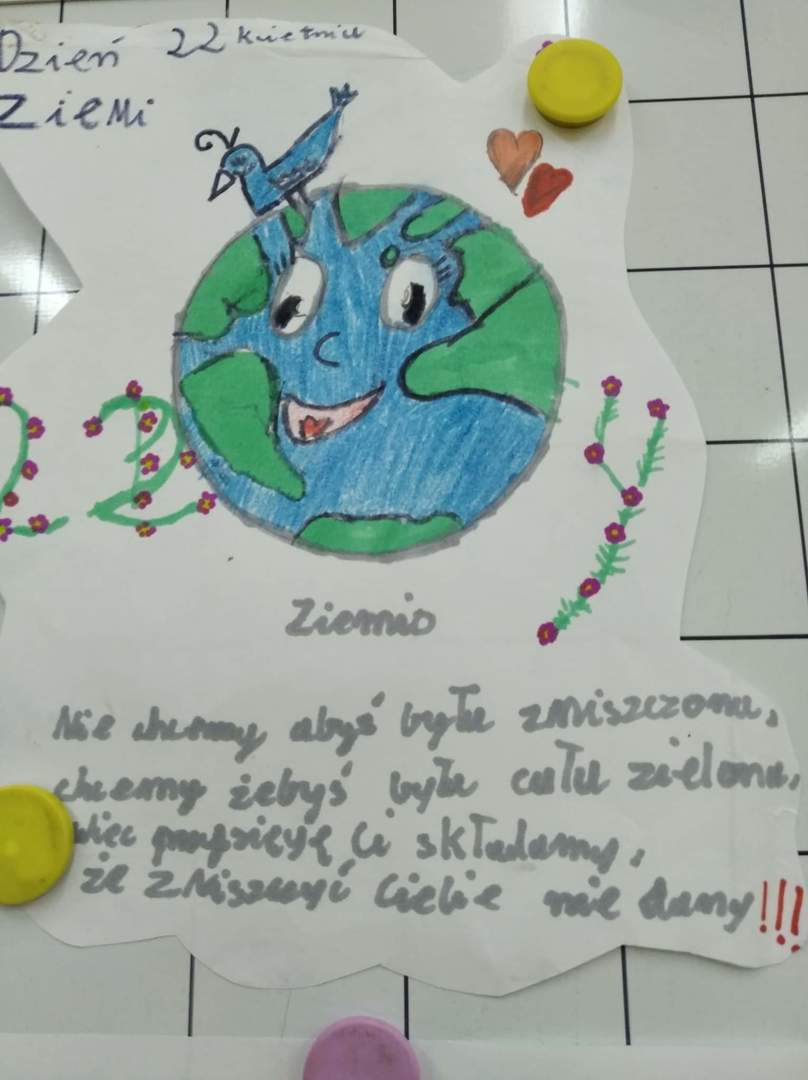 Dzień 22 kwietnia
Ziemi
22 4
Ziemio
Nie chcemy abyś była zniszczona,
chcemy żebyś była cała zielona,
więc przysięgę Ci składamy,
że zniszczyć Ciebie nie damy!!!